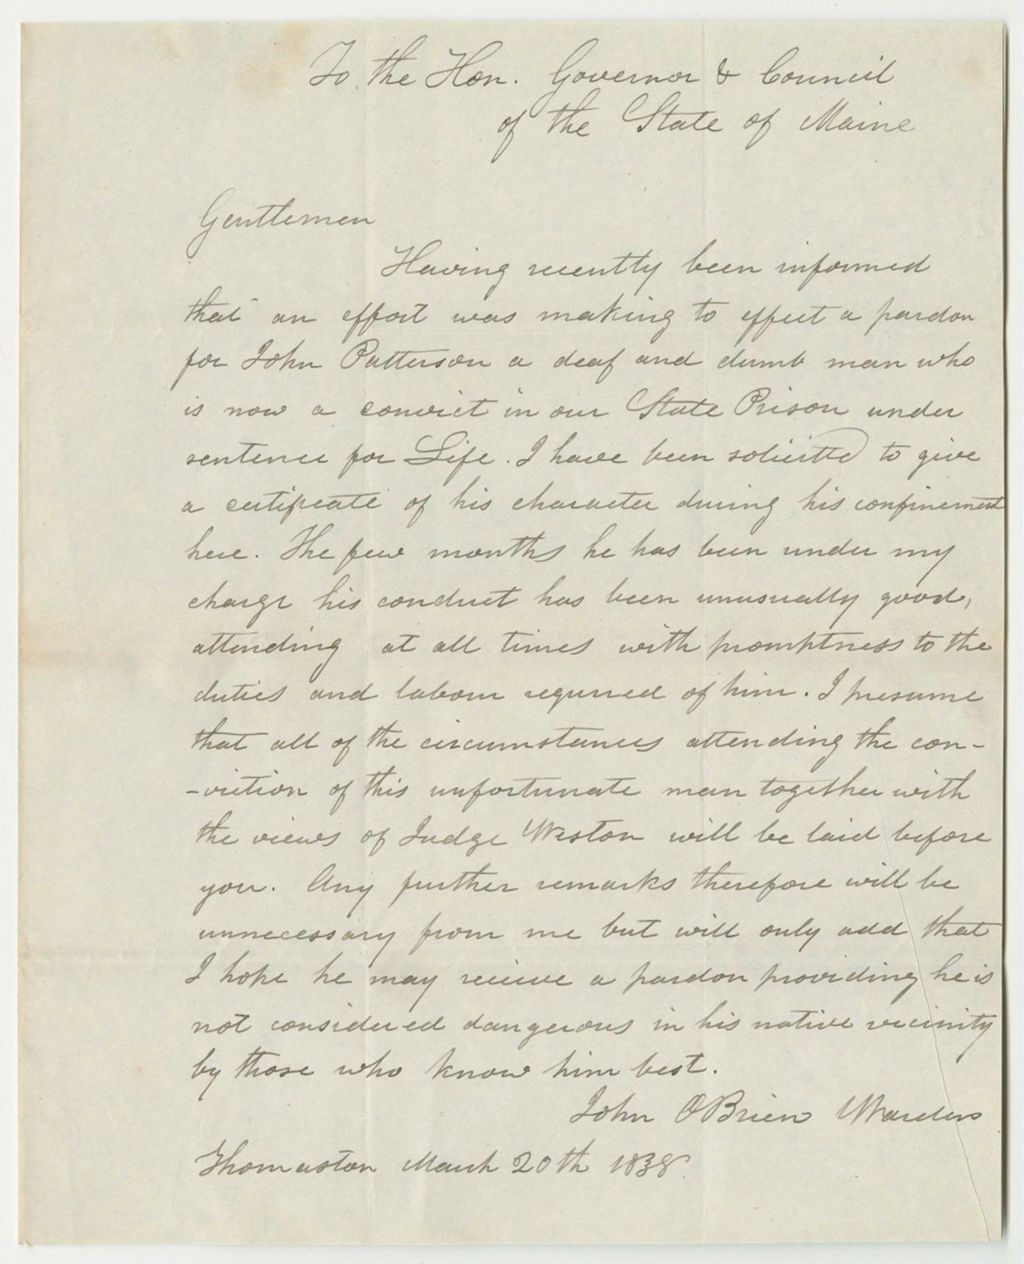 To the Hon. Governor & Council
of the State of Maine
Gentlemen
Having recently been informed
that an effort was making to effect a pardon
for John Patterson a deaf and dumb man who
is now a convict in our State Prison under
sentence for Life. I have been solicitted to give
a certificate of his character during his confinement
here. The few months he has been under my
charge his conduct has been unusually good,
attending at all times with promptness to the
duties and labour required of him. I presume
that all of the circumstances attending the con-
-viction of this unfortunate man together with
the views of Judge Weston will be laid before
you. Any further remarks therefore will be
unnecessary from me but will only add that
I hope he may receive a pardon providing he is
not considered dangerous in his native vicinity
by those who know him best.
John OBrien Warden
Thomaston March 20th 1838.